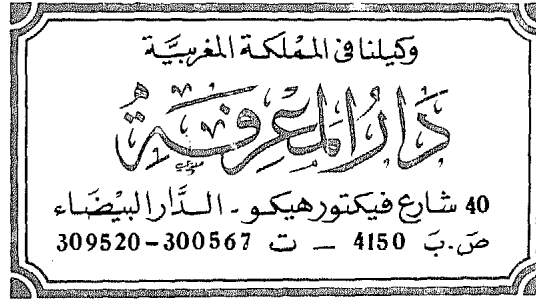 وكيلنا في المملكة المغربيَّة
دَارُ المَعْرِفَةُ
40 شارع فيكتور هيكو - الدَّار البيْضَاء
صَ.بَ 4150 — ت 300567-309520